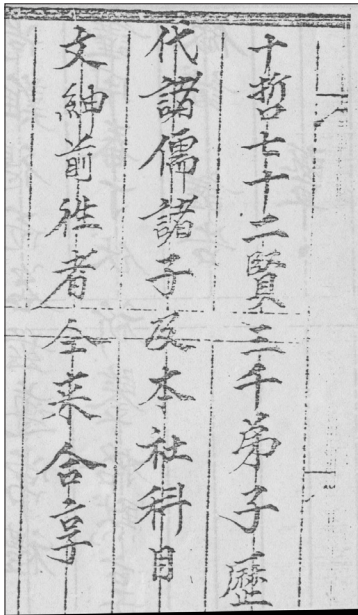 十哲七十二賢三千弟子歷
代諸儒諸子及本社科目
文紳前徃者仝来合享